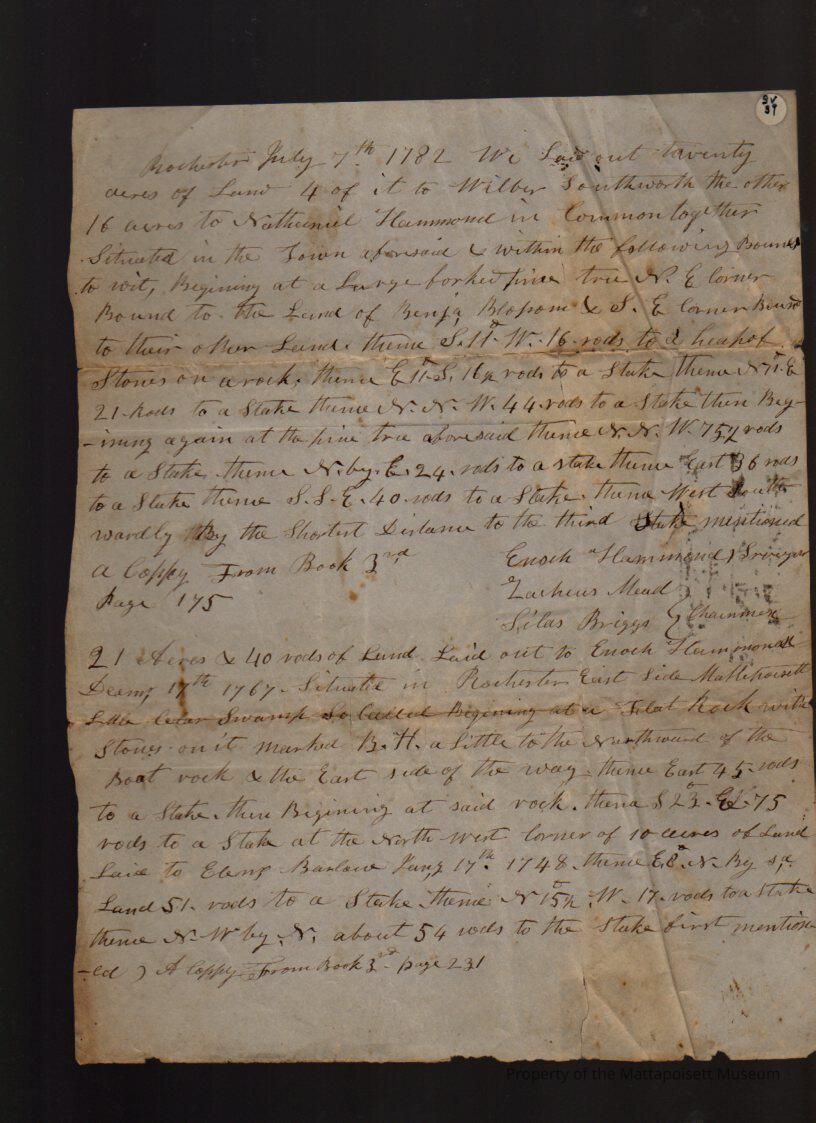 9V
39
Rochester July 7th 1782 We Laid out twenty
acres of Land 4 of it to Wilber Southworth the other
16 acres to Nathaniel Hammond in Common together
Situated in the Town aforesaid & within the following Bounds
to wit, Begining at a Large forked pine tree N. E Corner
Bound to the Land of Benja Blossom & S. E Corner Bound
to their other Land. thence S. 11° W. 16 rods to a heap of
Stones on a rock. thence E 11° S. 16½ rods to a Stake thence N 11° E
21 Rods to a Stake thence N. N. W. 44 rods to a Stake then Beg-
-ining again at the pine tree aforesaid thence N. N. W. 75½ rods
to a Stake. thence N. by. E. 24. rods to a stake thence East 36 rods
to a Stake thence S. S. E. 40. rods to a Stake. thence West South
wardly By the Shortest Distance to the third Stake mentioned
A Coppy From Book 3rd
Page 175
Enoch Hammond
Zacheus Mead
Silas Briggs } Chainmen
21 Acres & 40 rods of Land Laid out to Enoch Hammond
Decemr 17th 1767. Situated in Rochester East Side Mattepoisett
Little Cedar Swamp So Called Begining at a Flat Rock with
Stones on it marked B. H. a Little to the Northward of the
Boat rock & the East side of the way. thence East 45. rods
to a Stake. then Begining at said rock. thence S 23° 75
rods to a Stake at the North west Corner of 10 acres of Land
Laid to Barlow Jany 17th 1748. thence E 8° N. By sd
Land 51. rods to a Stake. thence N 15°½ W. 17. rods to a Stake
thence N. W by. N. about 54 rods to the Stake first mention
-ed ) A Coppy From Book 3rd page 231
Property of the Mattapoisett Museum